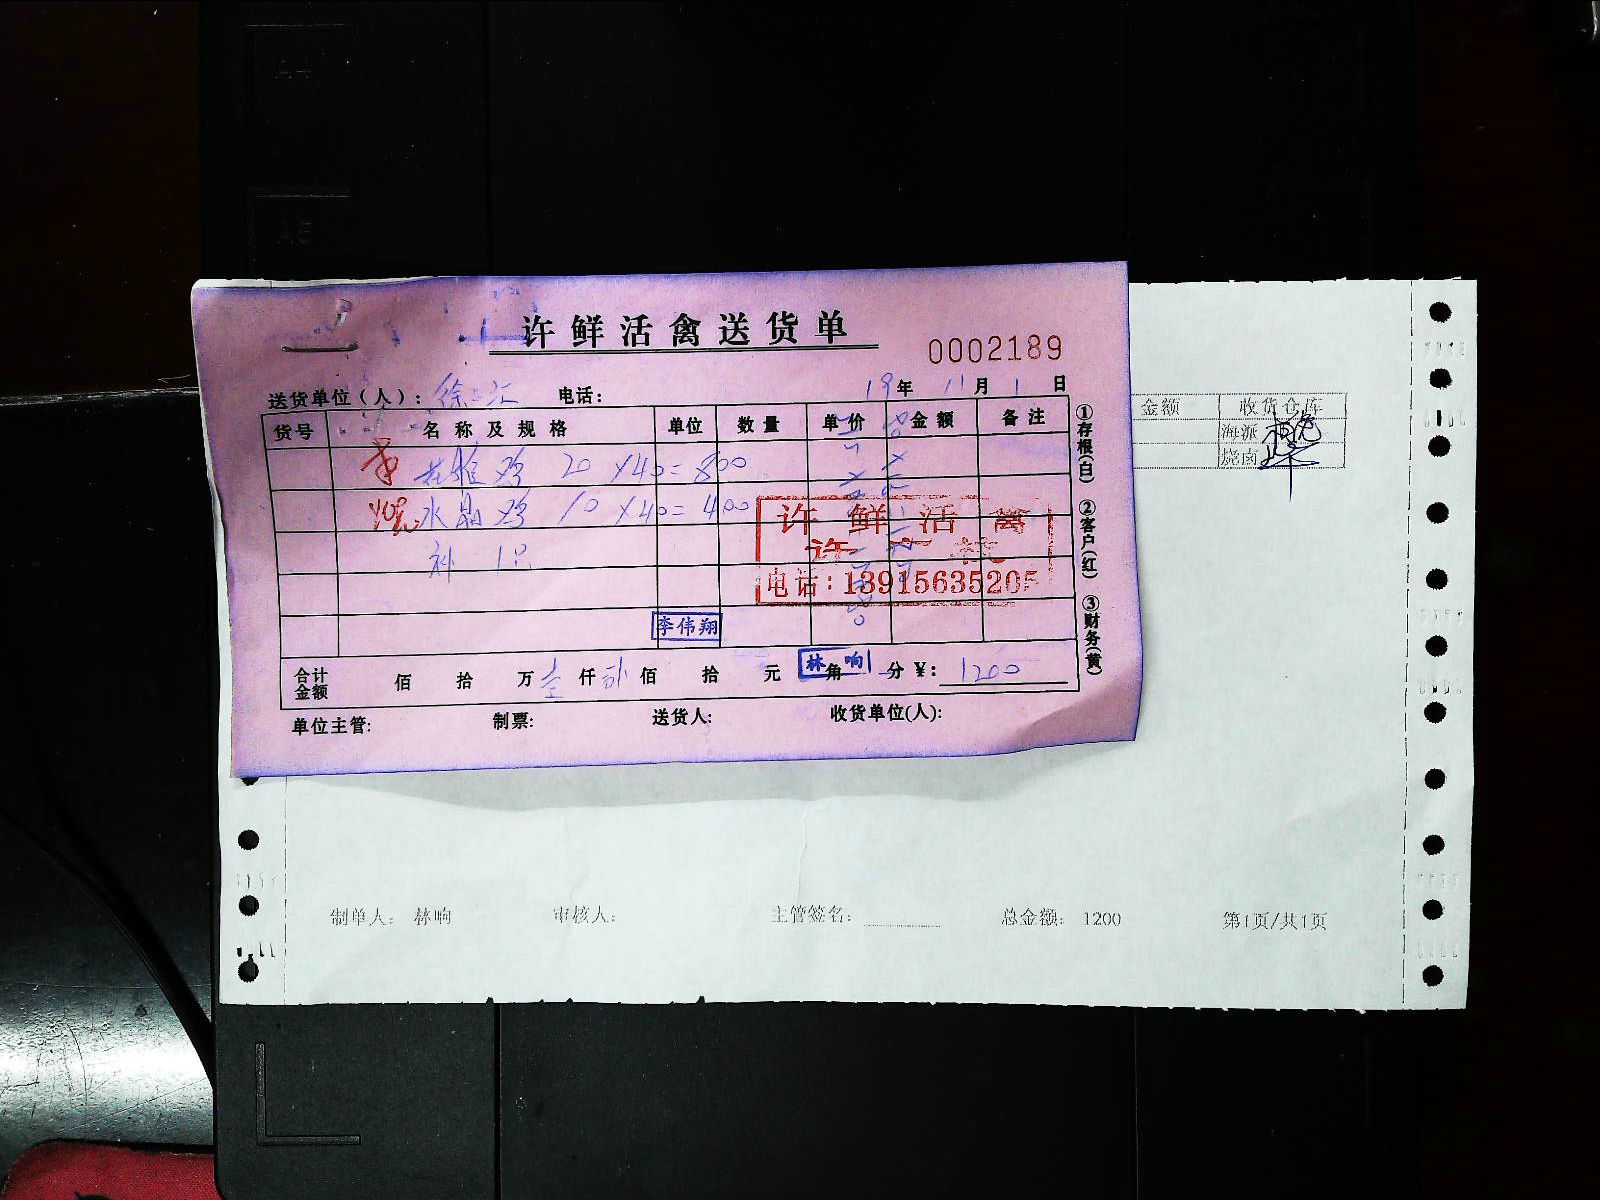 许鲜活禽送货单
0002189
送货单位（人）：徐汇 电话：
19年 11月 1日
货号 名称及规格 单位 数量 单价 金额 备注
花雕鸡 20 ×40=800
水晶鸡 10 ×40=400
补 1只
许鲜活禽
电话:13915635205
李伟翔
林响
合计金额 佰 拾 万 壹仟 贰佰 拾 元 角 分 ¥: 1200
单位主管: 制票: 送货人: 收货单位(人):
①存根(白) ②客户(红) ③财务(黄)
金额 收货仓库
海派
烧卤
制单人: 林响 审核人: 主管签名: 总金额: 1200 第1页/共1页